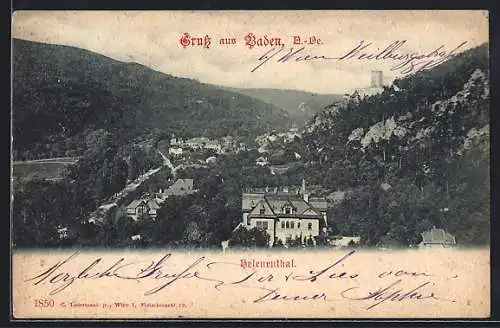 Gruß aus Baden, N.-Oe.
b/Wien Weilburgstraße
Helenenthal.
Herzliche Grüße Dir u. Lies von
Deiner Sophie
1850 C. Ledermann jr., Wien I., Fleischmarkt 12.